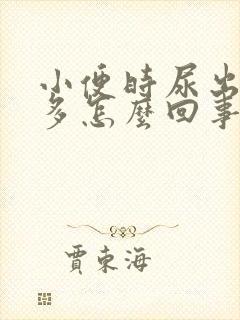 小便時尿出
多怎麼回事
賈東海